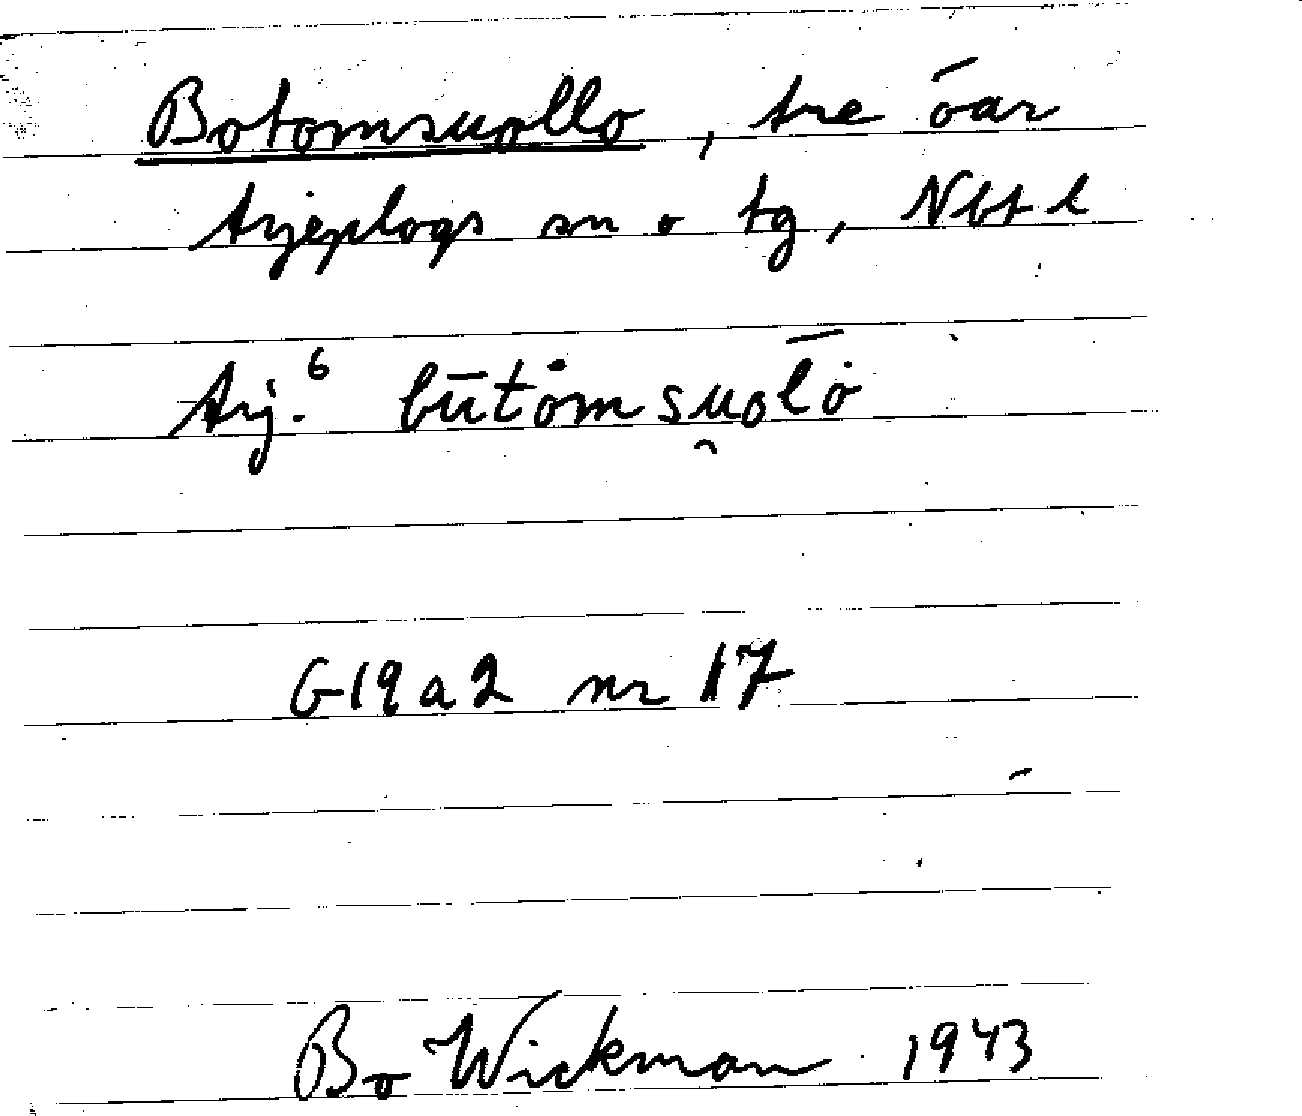 Botomsuollo, tre öar
Arjeplogs sn o tg, Nbt l
Arj.⁶ būtȯmsu̯ol̄ȯ
G19a2 nr 17
Bo Wickman 1943